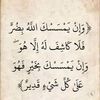 ﴿ وَإِن يَمْسَسْكَ اللَّهُ بِضُرٍّ
فَلَا كَاشِفَ لَهُ إِلَّا هُوَ ۖ
وَإِن يَمْسَسْكَ بِخَيْرٍ فَهُوَ
عَلَىٰ كُلِّ شَيْءٍ قَدِيرٌ ﴾